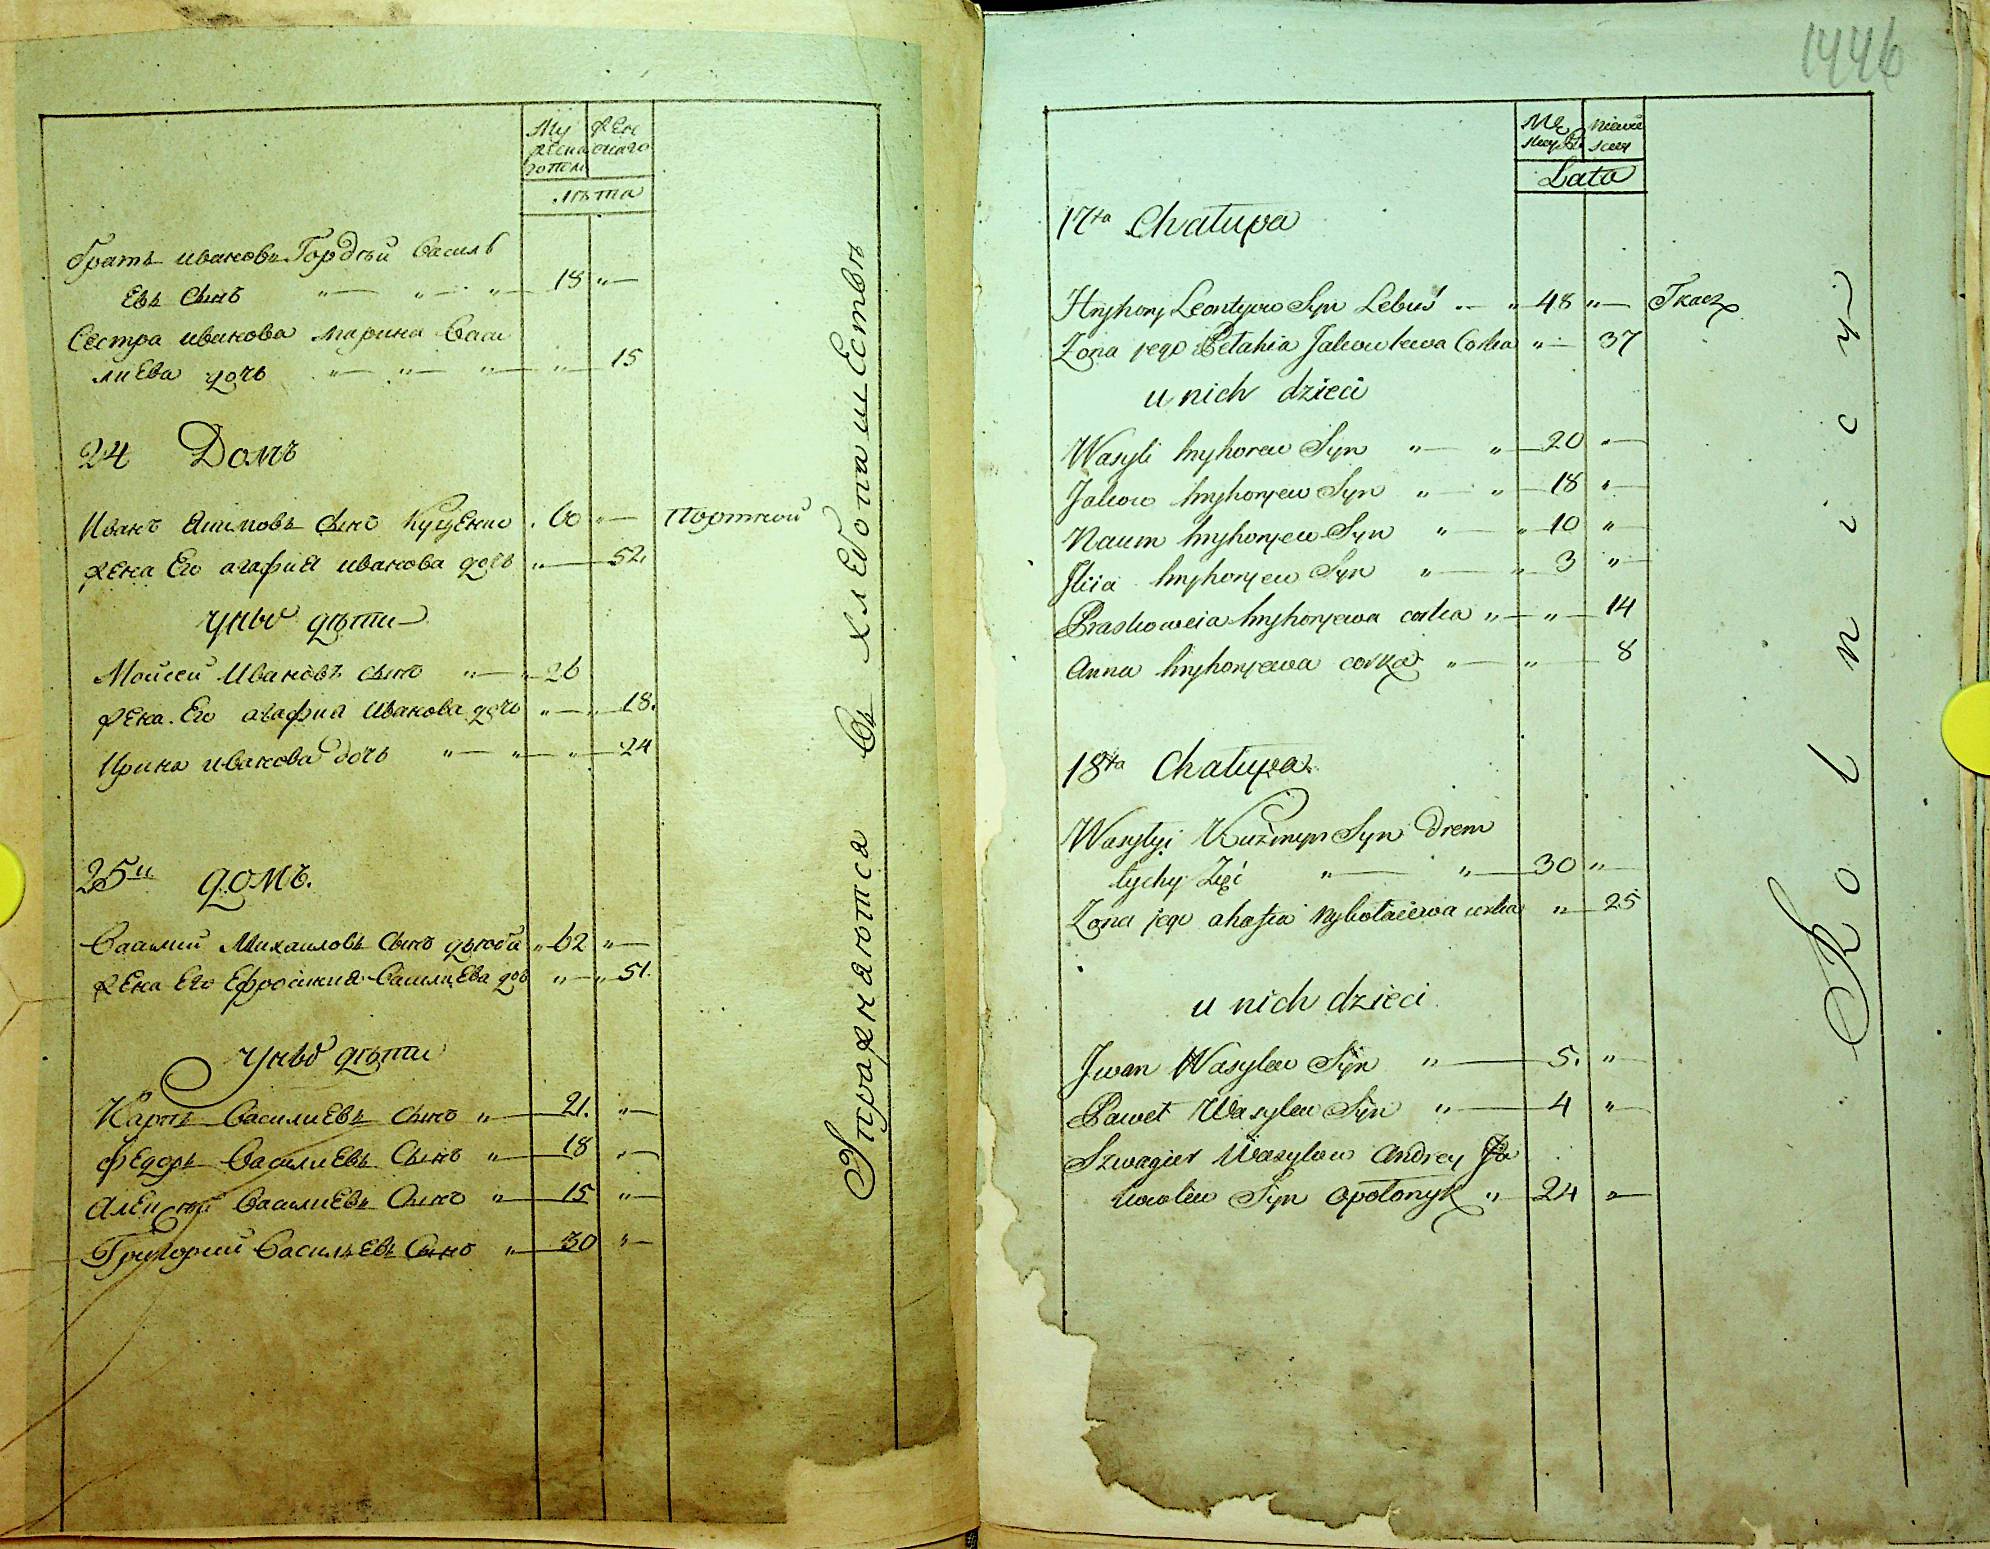 Му
жеска
го пола
жен
скаго
лѣта
братъ ивановъ Гордѣй василь
евъ сынъ " " " 18 "
Сестра иванова марина васи
лиева дочь " " " " 15
24 Домъ
Иванъ Якимовъ сынъ Куценко . 60 " портной
жена Его агафия иванова дочь " 52.
У ныхъ дѣти
Мойсей Ивановъ сынъ " " 26
жена Его агафия Иванова дочь " " 18.
Ирина иванова дочь " " " 24
25й домъ.
Василий Михаиловъ сынъ дзюба " 62 "
жена Его Ефросиния Василиева дочь " " 51.
У ныхъ дѣти
Карпъ Василиевъ сынъ " 21. "
Федоръ Василиевъ Сынъ " 18 "
Алексѣй Василиевъ Сынъ " 15 "
Григорий Васильевъ Сынъ " 30 "
Упражняются въ хлебопашествѣ
1446
Mę
skey
niewie
scey
Lata
17ta Chałupa
Hryhory Leontyew Syn Lebuś " " 48 " Tkacz
Żona jego Petahia Jakowlewa Corka " 37
u nich dzieci
Wasyli hryhorew Syn " " 20 "
Jakow hryhoryew Syn " " 18 "
Naum hryhoryew Syn " " 10 "
Jliia hryhoryew Syn " " 3 "
Praskoweia hryhoryewa corka " " 14
Anna hryhoryewa corka " " 8
18ta Chałupa
Wasylyi Kuźmyn Syn Drem
luchy Zięć " " 30 "
Żona jego ahafia Mykołaiewa corka " 25
u nich dzieci
Jwan Wasylew Syn " 5. "
Paweł Wasylew Syn " 4 "
Szwagier Wasylow Andrey Ja
kowlew Syn Opołonyk " 24 "
Rolnicy